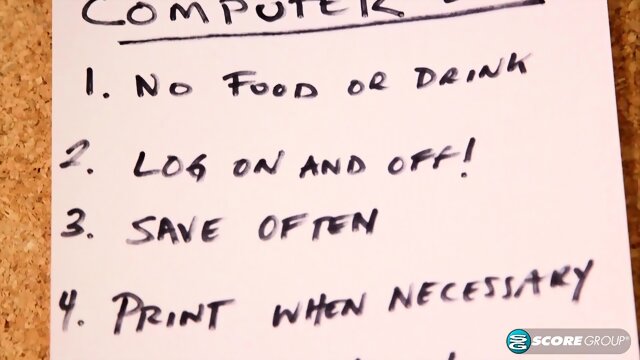 COMPUTER
1. NO FOOD OR DRINK
2. LOG ON AND OFF!
3. SAVE OFTEN
4. PRINT WHEN NECESSARY
SCORE GROUP®